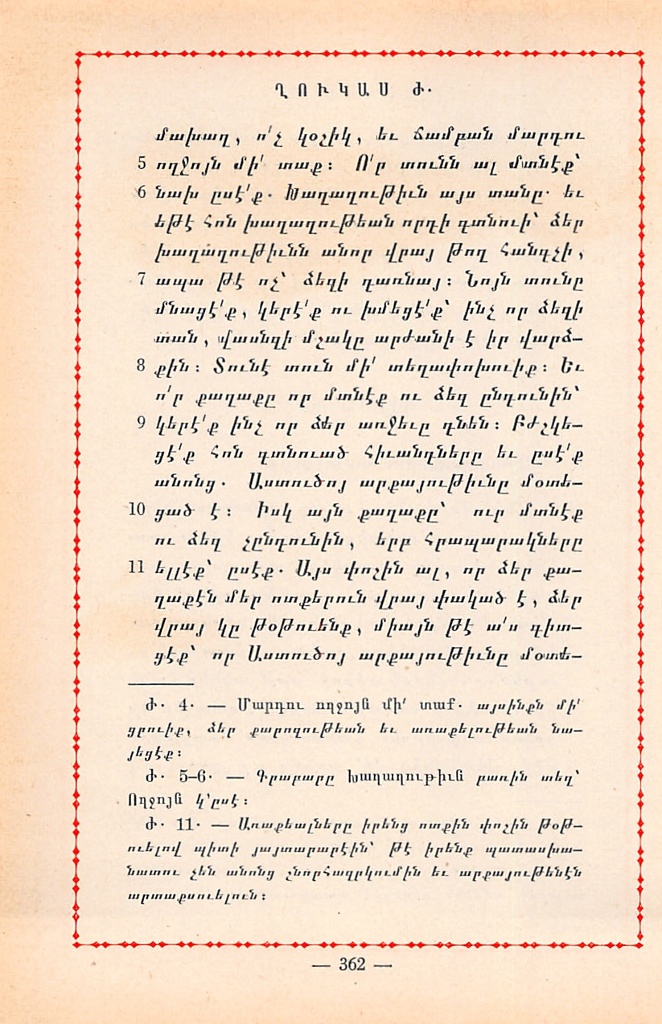 ՂՈՒԿԱՍ Ժ.
մախաղ, ո՛չ կօշիկ, եւ ճամբան մարդու
5 ողջոյն մի՛ տաք։ Ո՛ր տունն ալ մտնէք՝
6 նախ ըսէ՛ք. Խաղաղութիւն այս տանը. եւ
եթէ հոն խաղաղութեան որդի գտնուի՝ ձեր
խաղաղութիւնն անոր վրայ թող հանգչի,
7 ապա թէ ոչ՝ ձեզի դառնայ։ Նոյն տունը
մնացէ՛ք, կերէ՛ք ու խմեցէ՛ք՝ ինչ որ ձեզի
տան, վասնզի մշակը արժանի է իր վարձ–
8 քին։ Տունէ տուն մի՛ տեղափոխուիք։ Եւ
ո՛ր քաղաքը որ մտնէք ու ձեզ ընդունին՝
9 կերէ՛ք ինչ որ ձեր առջեւը դնեն։ Բժշկե–
ցէ՛ք հոն գտնուած հիւանդները եւ ըսէ՛ք
անոնց. Աստուծոյ արքայութիւնը մօտե–
10 ցած է։ Իսկ այն քաղաքը՝ ուր մտնէք
ու ձեզ չընդունին, երբ հրապարակները
11 ելլէք՝ ըսէք. Այս փոշին ալ, որ ձեր քա–
ղաքէն մեր ոտքերուն վրայ փակած է, ձեր
վրայ կը թօթուենք, միայն թէ ա՛ս գիտ–
ցէք՝ որ Աստուծոյ արքայութիւնը մօտե–
Ժ. 4. — Մարդու ողջոյն մի՛ տաք. այսինքն մի՛
ցրուիք, ձեր քարոզութեան եւ առաքելութեան նա–
յեցէք։
Ժ. 5–6. — Գրաբարը խաղաղութիւն բառին տեղ՝
Ողջոյն կ՚ըսէ։
Ժ. 11. — Առաքեալները իրենց ոտքին փոշին թօթ–
ուելով պիտի յայտարարէին՝ թէ իրենք պատասխա–
նատու չեն անոնց շնորհազրկումին եւ արքայութենէն
արտաքսուելուն։
— 362 —